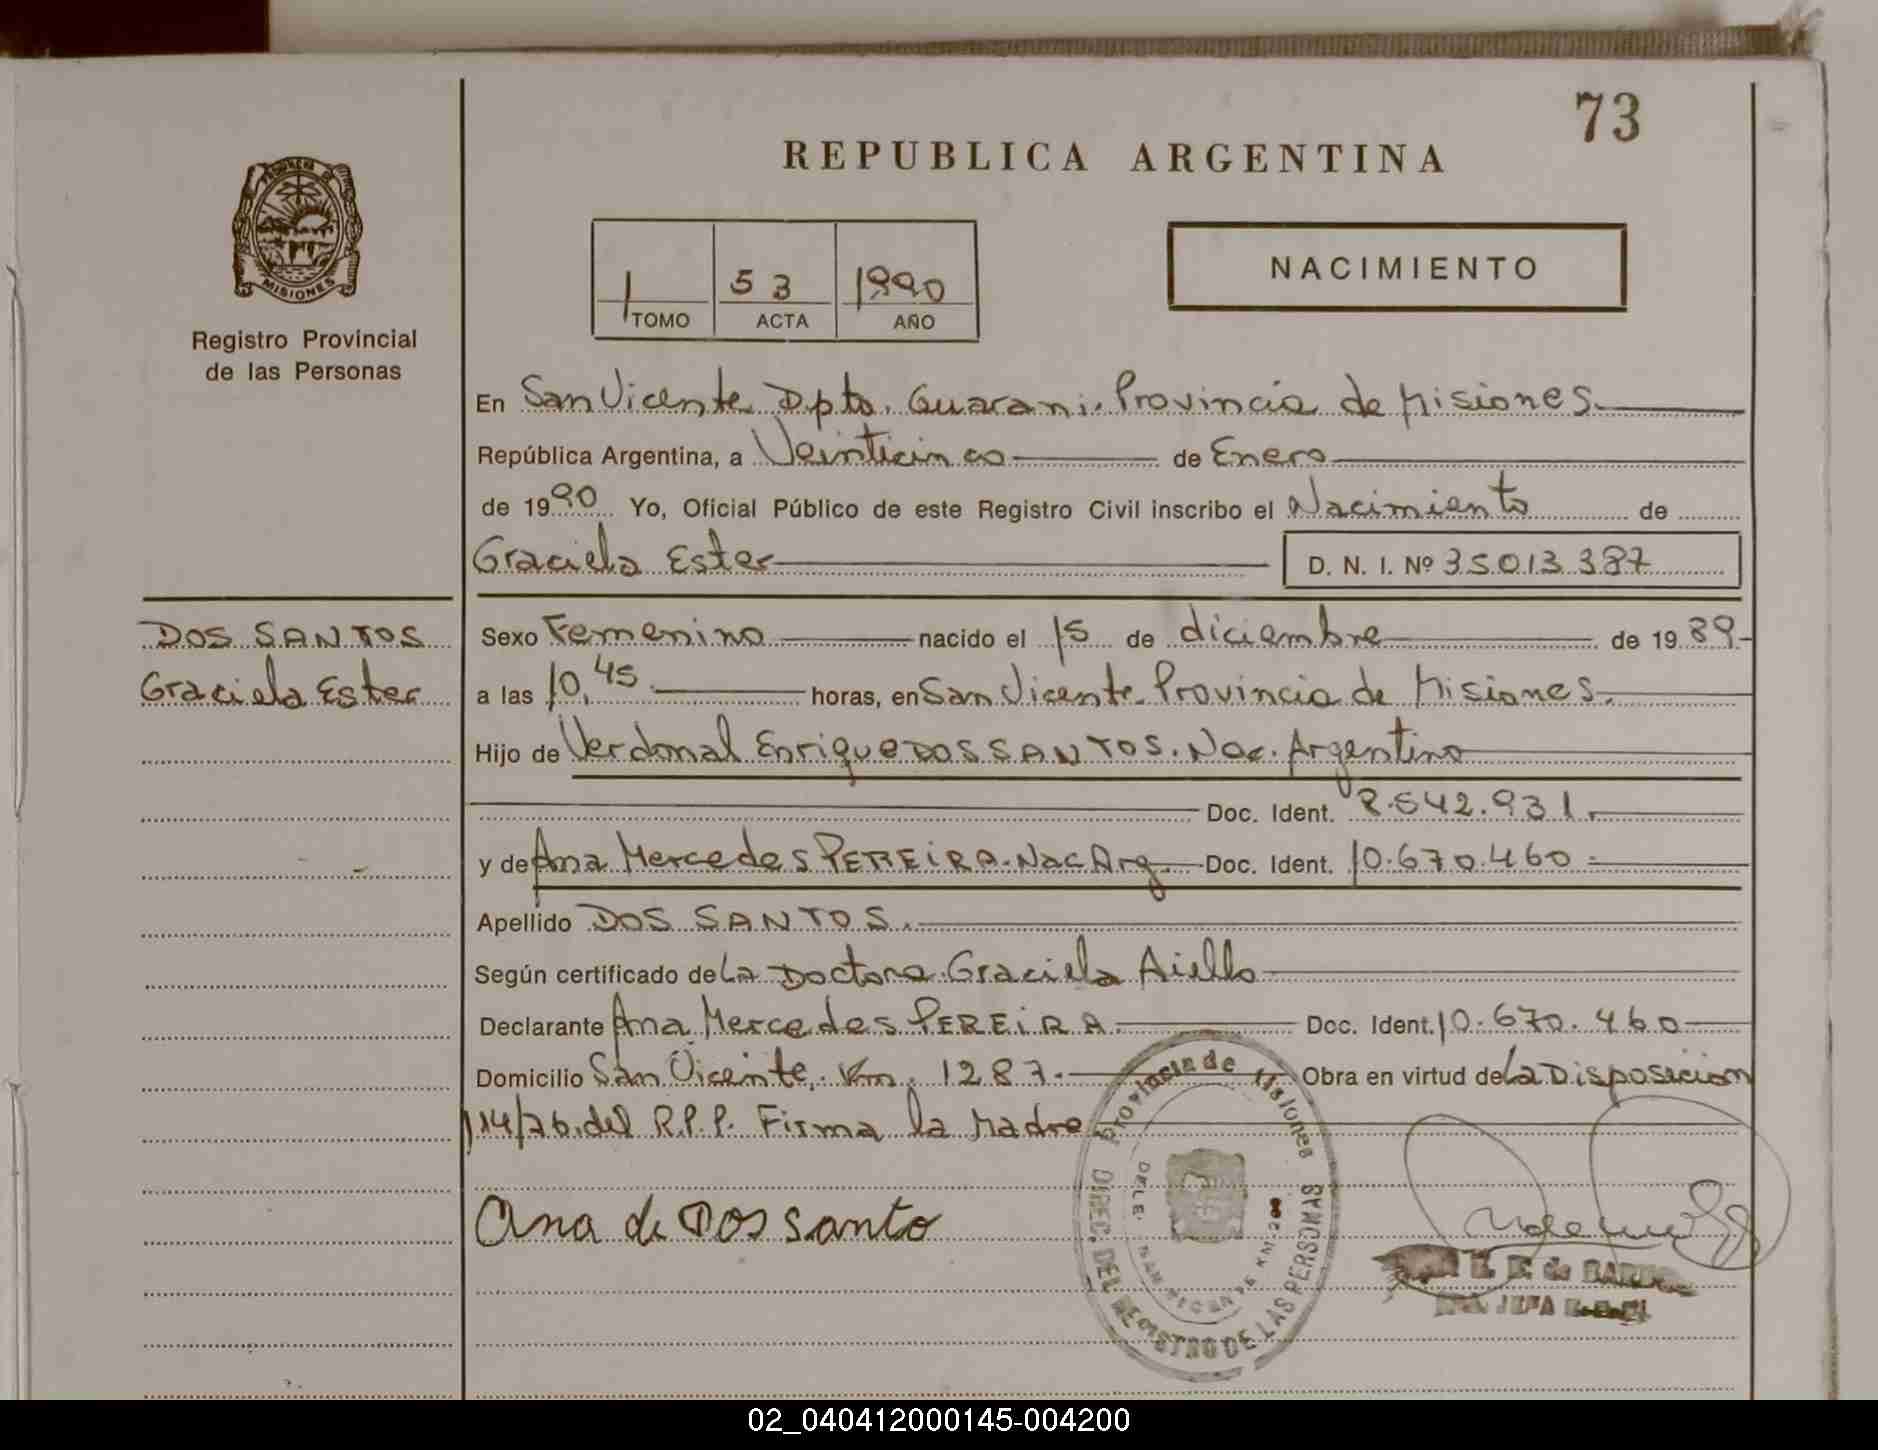 73
REPUBLICA ARGENTINA
PROVINCIA DE
MISIONES
Registro Provincial
de las Personas
1 53 1990
TOMO ACTA AÑO
NACIMIENTO
En San Vicente Dpto. Guarani. Provincia de Misiones.
República Argentina, a Veinticinco de Enero
de 1990 Yo, Oficial Público de este Registro Civil inscribo el Nacimiento de
Graciela Ester D. N. I. Nº 35.013.387
DOS SANTOS
Graciela Ester
Sexo Femenino nacido el 15 de diciembre de 1989
a las 10,45 horas, en San Vicente. Provincia de Misiones.
Hijo de Verdonal Enrique DOS SANTOS. Nac. Argentino
Doc. Ident. 8.542.931.
y de Ana Mercedes PEREIRA. Nac Arg. Doc. Ident. 10.670.460
Apellido DOS SANTOS.
Según certificado de La Doctora Graciela Aiello
Declarante Ana Mercedes PEREIRA Doc. Ident. 10.670.460
Domicilio San Vicente. Km. 1287. Obra en virtud de La Disposicion
114/76 del R.P.P. Firma la Madre
Ana de Dos santo
Provincia de Misiones
DIREC. DEL REGISTRO DE LAS PERSONAS
DELE. SAN VICENTE KM.
de
JEFA
02_040412000145-004200